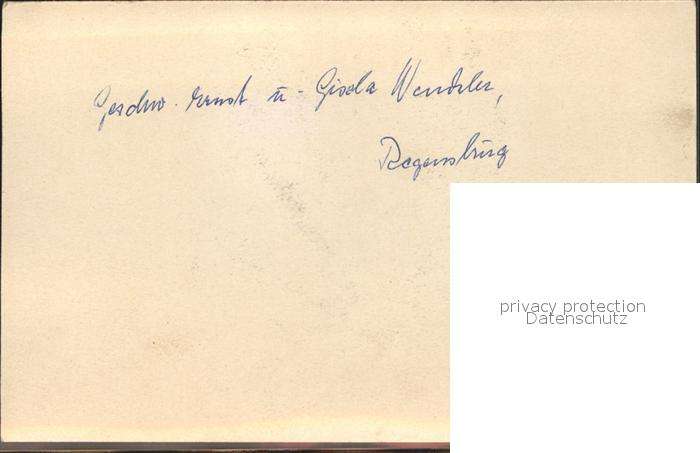 Geschw. Ernst u. Gisela
Regensburg
privacy protection
Datenschutz